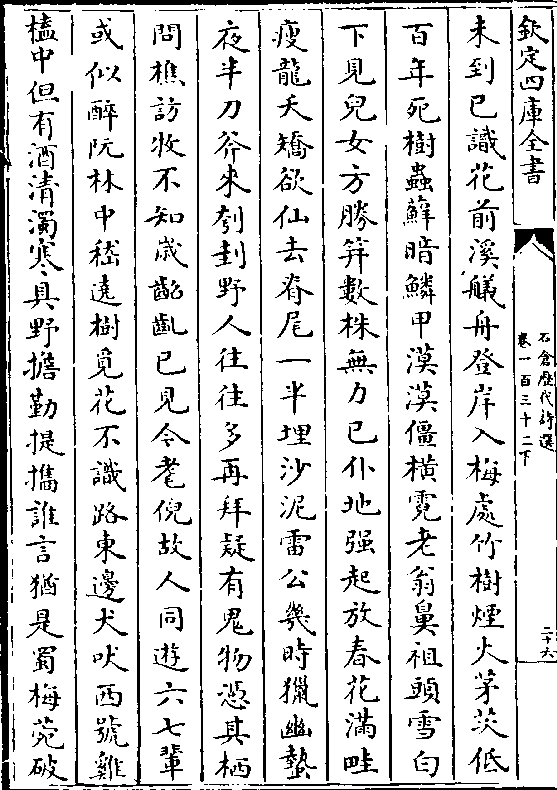 欽定四庫全書
石倉歷代詩選
卷一百三十二下
二十六
未到已識花前溪艤舟登岸入梅處竹樹煙火茅茨低
百年死樹蟲蘚暗鱗甲漠漠僵横霓老翁鼻祖頭雪白
下見兒女方勝笄數株無力已仆地强起放春花滿畦
瘦龍夭矯欲仙去脊尾一半埋沙泥雷公幾時獵幽蟄
夜半刀斧來刳刲野人往往多再拜疑有鬼物憑其栖
問樵訪牧不知歲齠齔已見今耄倪故人同遊六七輩
或似醉阮林中嵇遶樹覓花不識路東邊犬吠西號雞
榼中但有酒清濁寒具野擔勤提攜誰言猶是蜀梅苑破